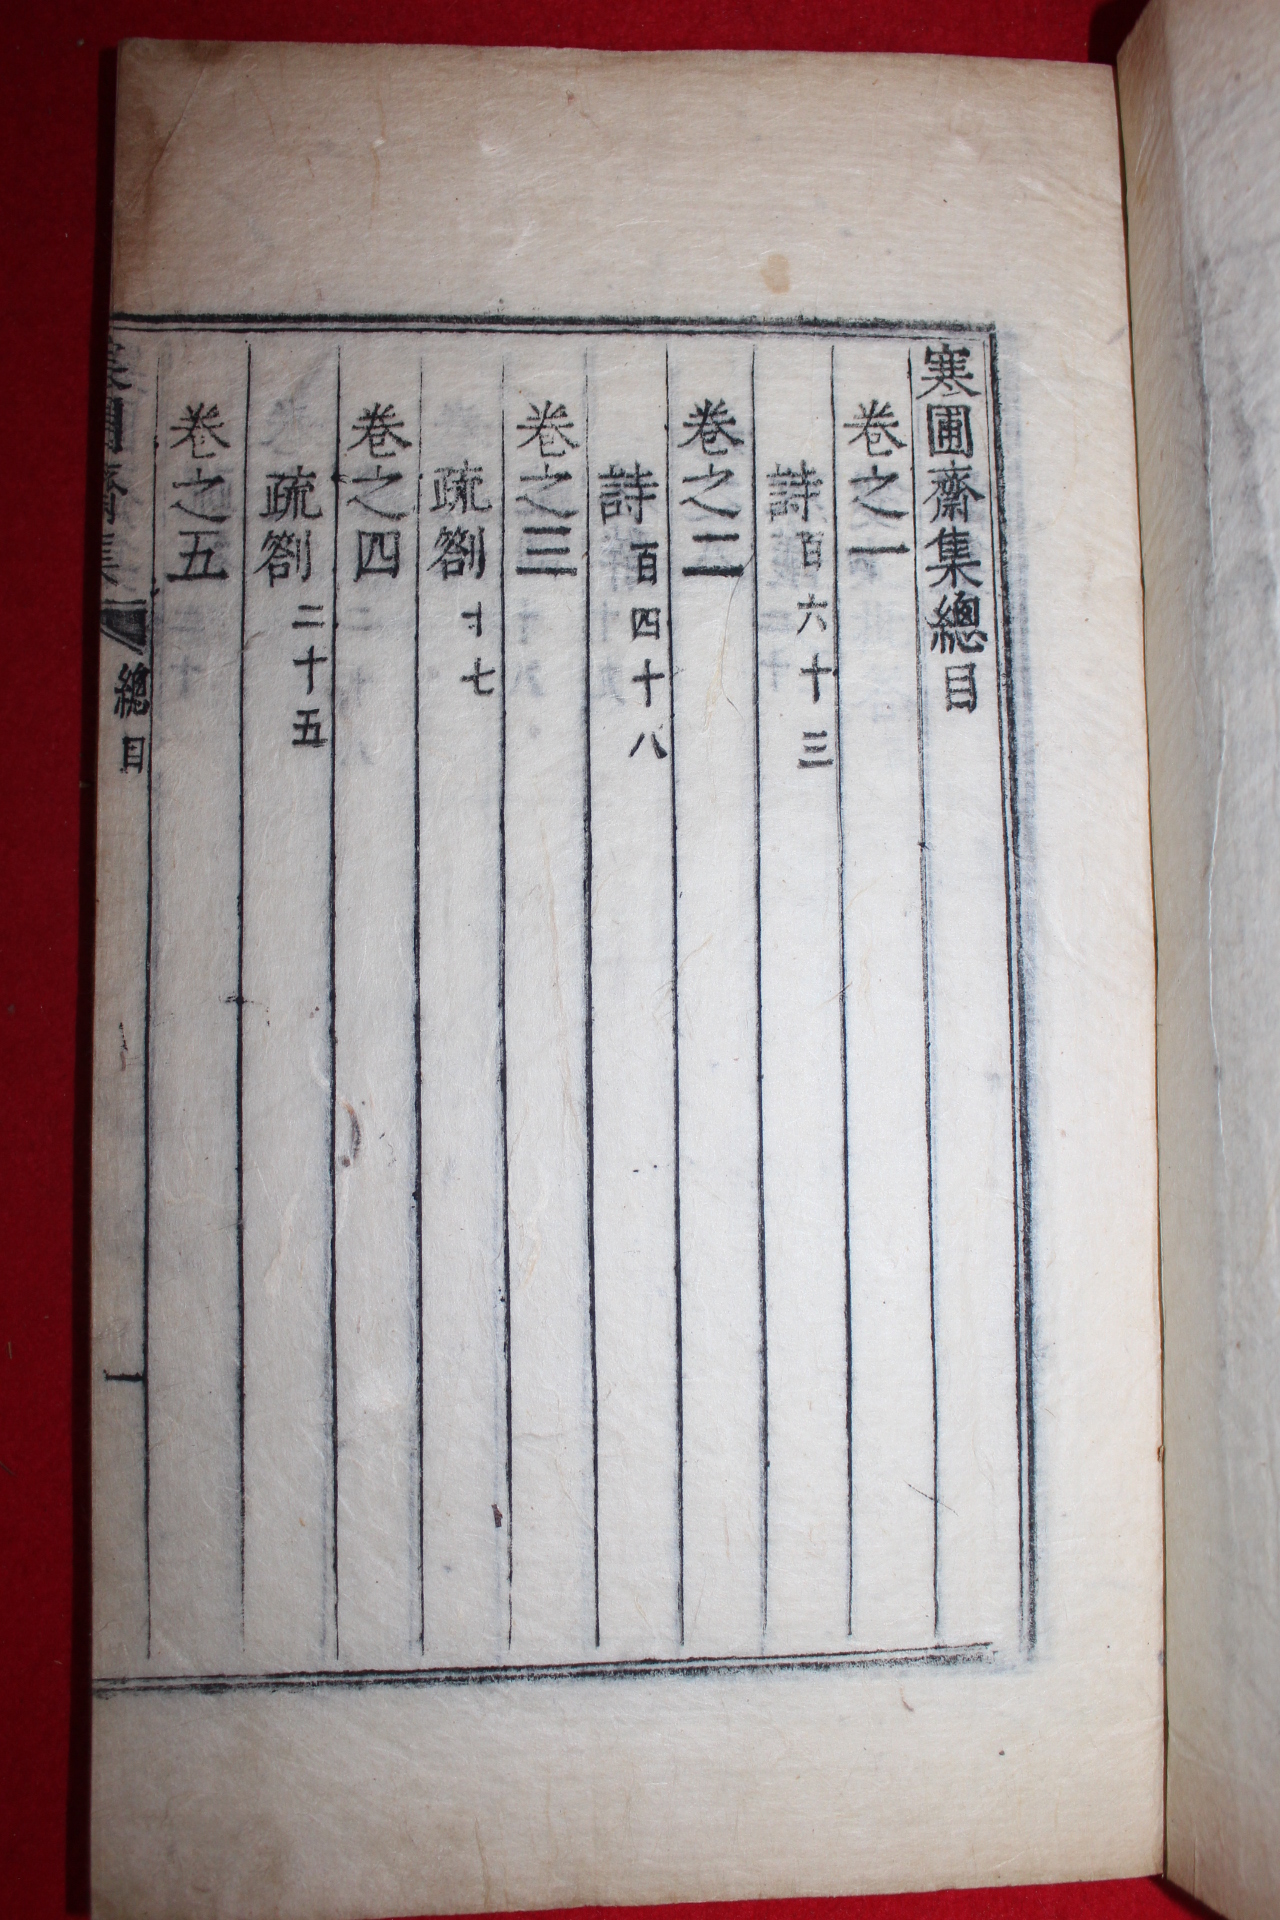 寒圃齋集總目
卷之一
詩百六十三
卷之二
詩百四十八
卷之三
疏劄十七
卷之四
疏劄二十五
卷之五
寒圃齋集 總目 一